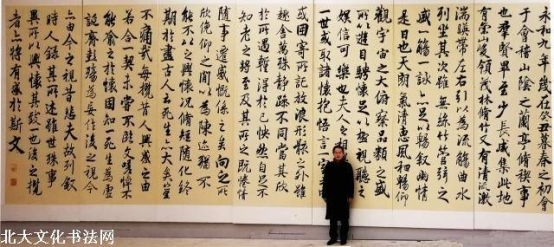 永和九年歲在癸丑暮春之初會
于會稽山陰之蘭亭修稧事
也羣賢畢至少長咸集此地
有崇山峻領茂林修竹又有清流激
湍暎帶左右引以為流觴曲水
列坐其次雖無絲竹管弦之
盛一觴一詠亦足以暢敘幽情
是日也天朗氣清惠風和暢仰
觀宇宙之大俯察品類之盛
所以遊目騁懷足以極視聽之
娛信可樂也夫人之相與俯仰
一世或取諸懷抱悟言一室之內
或因寄所託放浪形骸之外雖
趣舍萬殊靜躁不同當其欣
於所遇暫得於己怏然自足不
知老之將至及其所之既惓情
隨事遷感慨係之矣向之所
欣俛仰之閒以為陳迹猶不
能不以之興懷況脩短隨化終
期於盡古人云死生亦大矣豈
不痛哉每攬昔人興感之由
若合一契未嘗不臨文嗟悼不
能喻之於懷固知一死生為虛
誕齊彭殤為妄作後之視今
亦由今之視昔悲夫故列敘
時人錄其所述雖世殊事
異所以興懷其致一也後之攬
者亦將有感於斯文
北大文化书法网